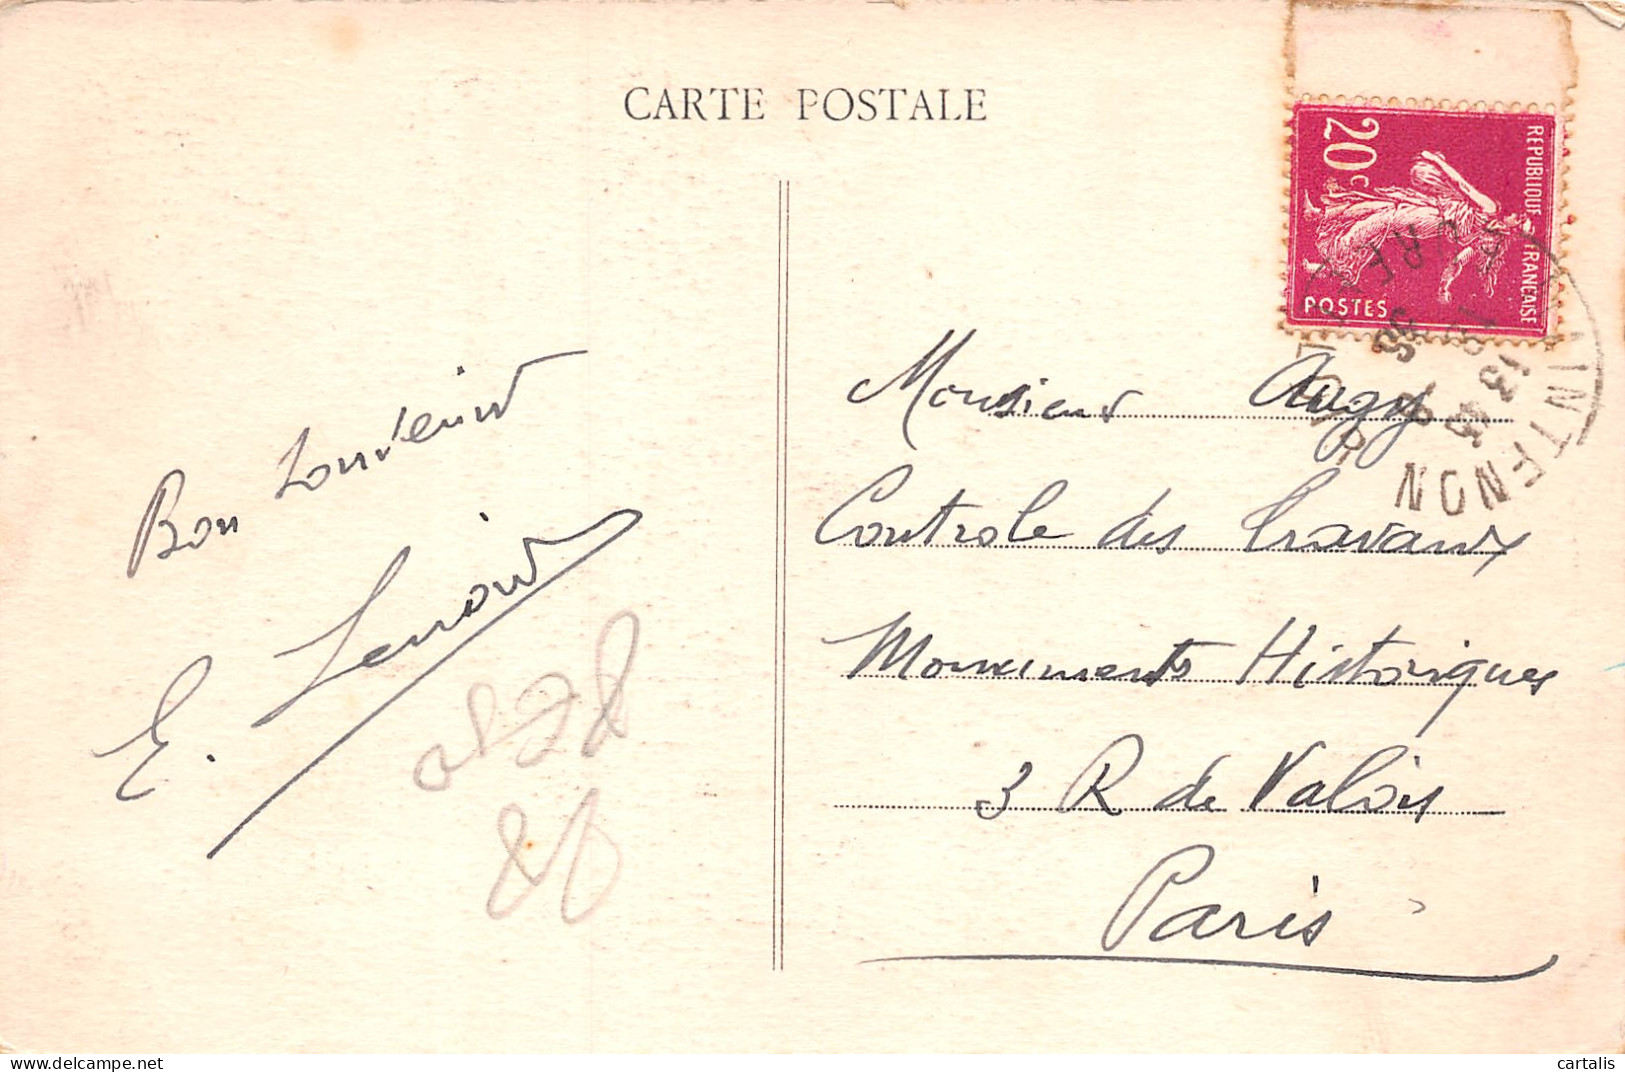 CARTE POSTALE
REPUBLIQUE FRANÇAISE
20c
POSTES
13 45
36
Bon souvenir
E.
Monsieur Augy
Controle des Travaux
Monuments Historiques
3 R de Valois
Paris
cartalis
www.delcampe.net